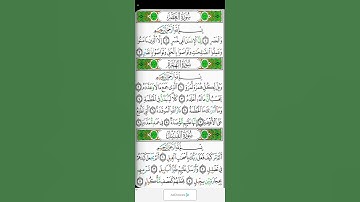 سُورَةُ العَصْرِ
بِسْمِ اللَّهِ الرَّحْمَٰنِ الرَّحِيمِ
وَالْعَصْرِ ۝ إِنَّ الْإِنسَانَ لَفِي خُسْرٍ ۝ إِلَّا الَّذِينَ آمَنُوا
وَعَمِلُوا الصَّالِحَاتِ وَتَوَاصَوْا بِالْحَقِّ وَتَوَاصَوْا بِالصَّبْرِ ۝
سُورَةُ الهُمَزَةِ
بِسْمِ اللَّهِ الرَّحْمَٰنِ الرَّحِيمِ
وَيْلٌ لِّكُلِّ هُمَزَةٍ لُّمَزَةٍ ۝ الَّذِي جَمَعَ مَالًا وَعَدَّدَهُ ۝
يَحْسَبُ أَنَّ مَالَهُ أَخْلَدَهُ ۝ كَلَّا لَيُنبَذَنَّ فِي الْحُطَمَةِ ۝
وَمَا أَدْرَاكَ مَا الْحُطَمَةُ ۝ نَارُ اللَّهِ الْمُوقَدَةُ ۝ الَّتِي تَطَّلِعُ
عَلَى الْأَفْئِدَةِ ۝ إِنَّهَا عَلَيْهِم مُّؤْصَدَةٌ ۝ فِي عَمَدٍ مُّمَدَّدَةٍ ۝
سُورَةُ الفِيلِ
بِسْمِ اللَّهِ الرَّحْمَٰنِ الرَّحِيمِ
أَلَمْ تَرَ كَيْفَ فَعَلَ رَبُّكَ بِأَصْحَابِ الْفِيلِ ۝ أَلَمْ يَجْعَلْ كَيْدَهُمْ
فِي تَضْلِيلٍ ۝ وَأَرْسَلَ عَلَيْهِمْ طَيْرًا أَبَابِيلَ ۝ تَرْمِيهِم
بِحِجَارَةٍ مِّن سِجِّيلٍ ۝ فَجَعَلَهُمْ كَعَصْفٍ مَّأْكُولٍ ۝